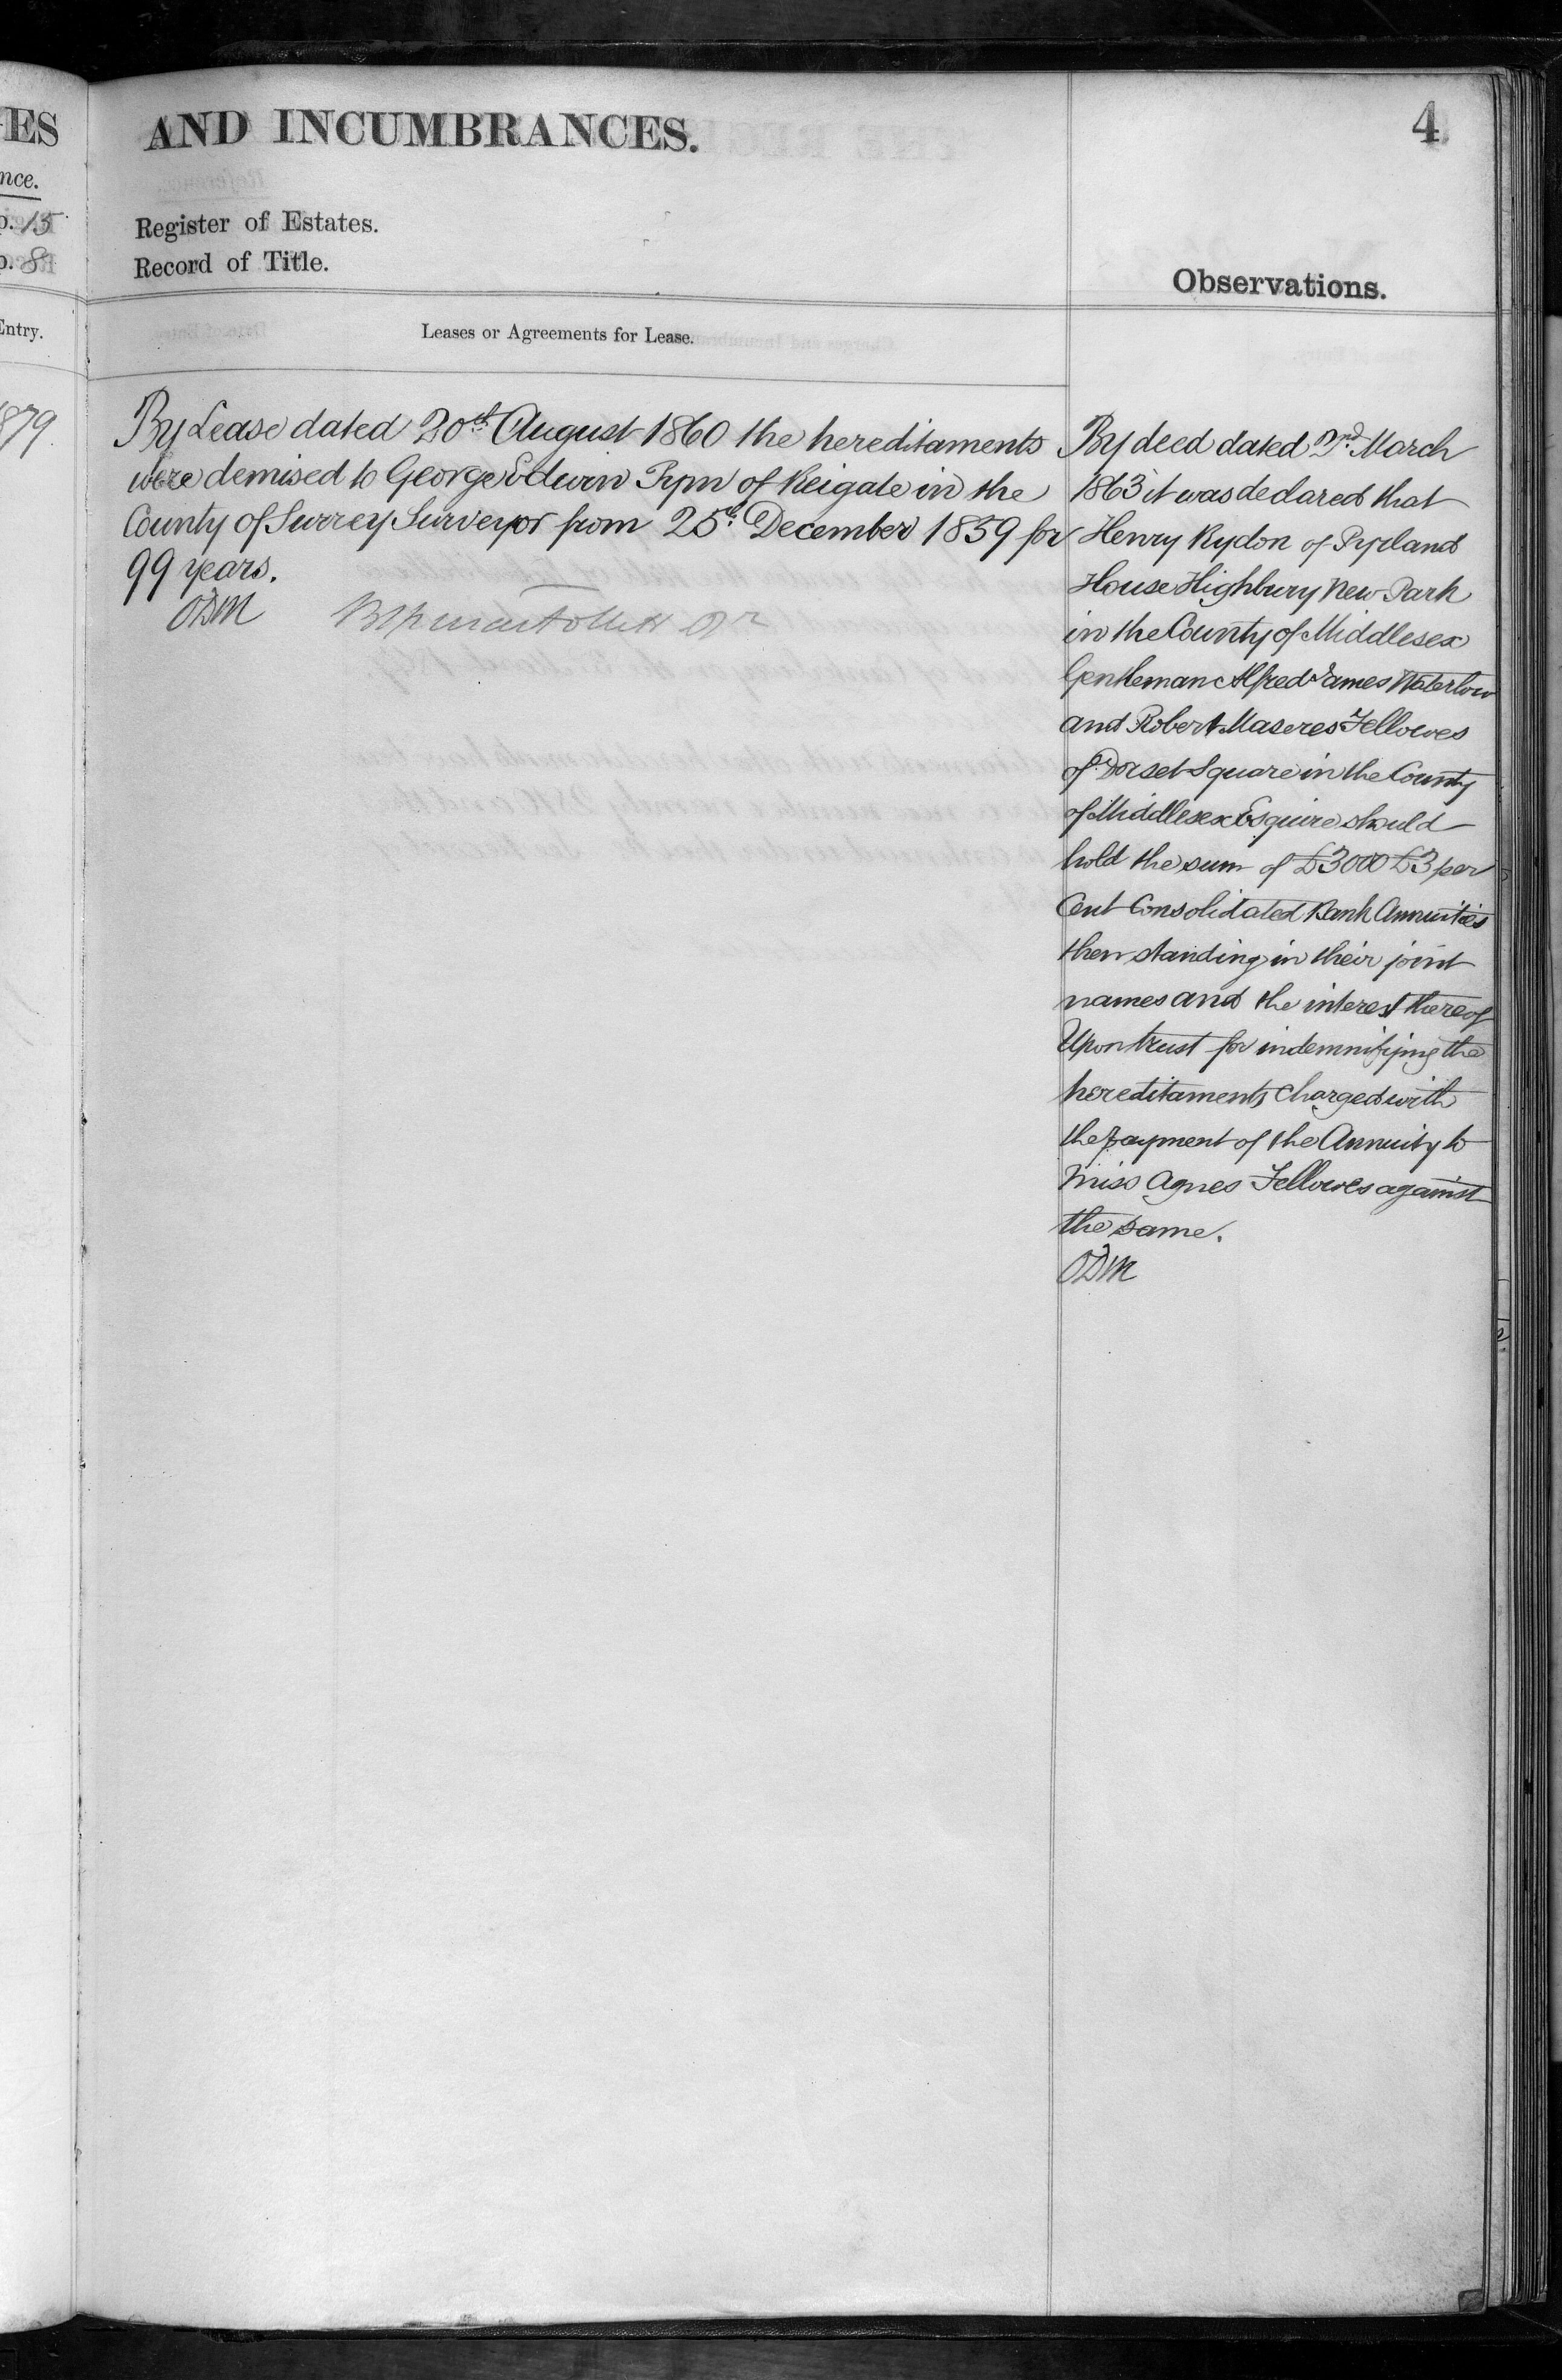 ES
nce.
p. 15
p. 8
Entry.
1879.
AND INCUMBRANCES.
4
Register of Estates.
Record of Title.
Observations.
Leases or Agreements for Lease.
By Lease dated 20th August 1860 the hereditaments
were demised to George Edwin Pym of Reigate in the
County of Surrey Surveyor from 25th December 1859 for
99 years.
ODM
By deed dated 3rd March
1863 it was declared that
Henry Rydon of Pyrland
House Highbury New Park
in the County of Middlesex
Gentleman Alfred James Waterlow
and Robert Maseres Fellowes
of Dorset Square in the County
of Middlesex Esquire should
hold the sum of £3000 £3 per
Cent Consolidated Bank Annuities
then standing in their joint
names and the interest thereof
Upon trust for indemnifying the
hereditaments charged with
the payment of the Annuity to
Miss Agnes Fellowes against
the same.
ODM